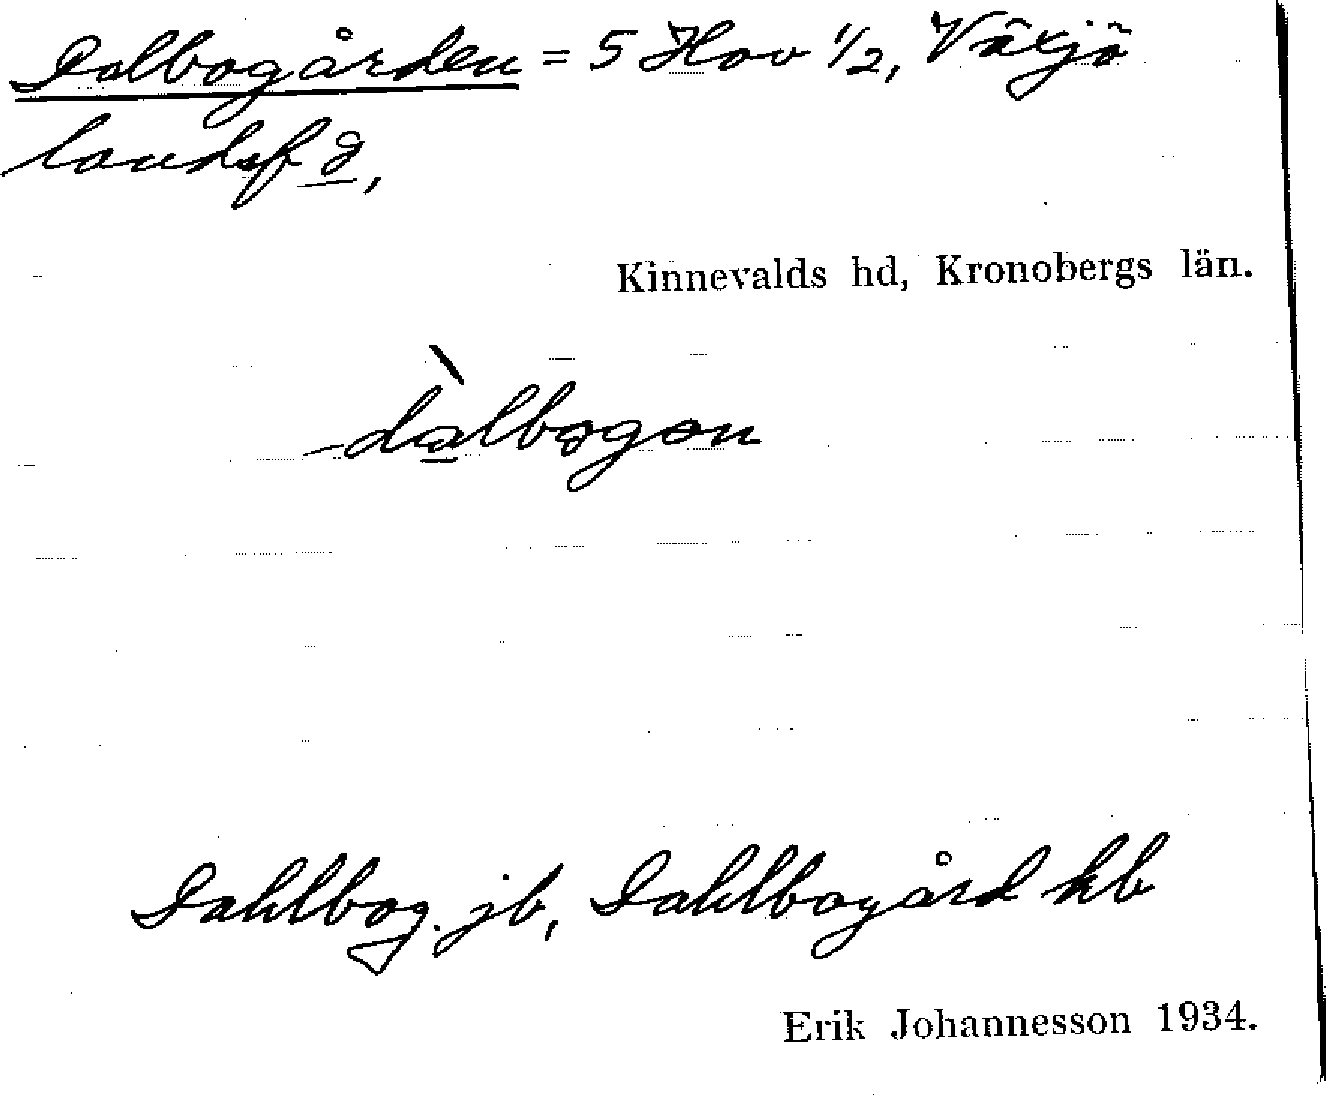 Dalbogården = 5 Hov 1/2, Växjö
landsf d,
Kinnevalds hd, Kronobergs län.
dàlbogən
Dahlbog. jb, Dahlbogård hb
Erik Johannesson 1934.